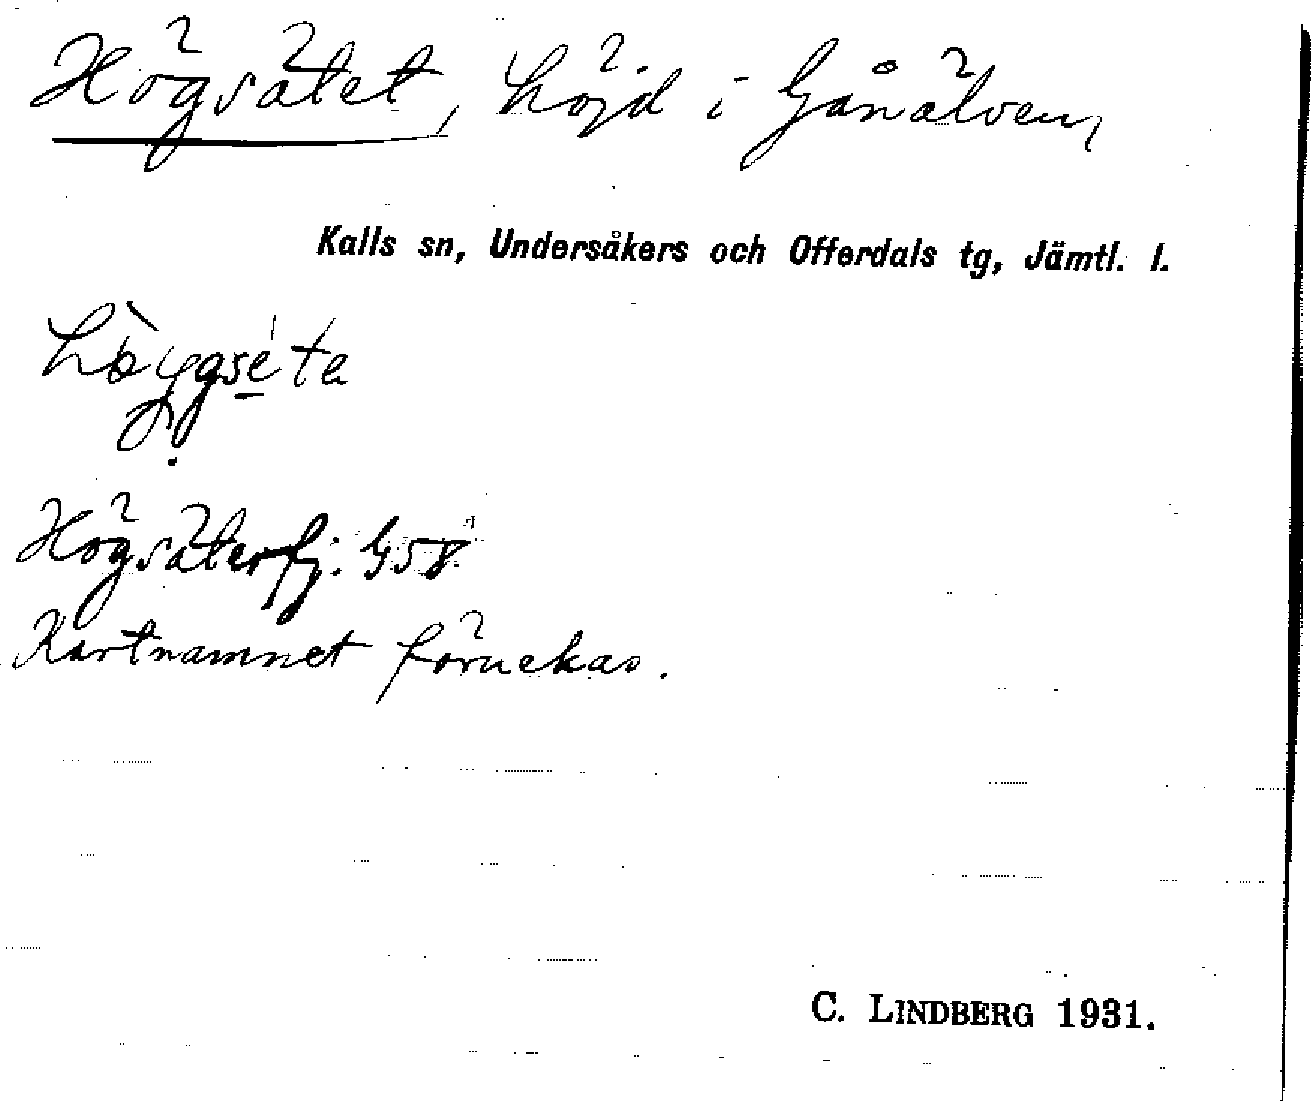 Högsätet, höjd i Gånälven,
Kalls sn, Undersåkers och Offerdals tg, Jämtl. l.
Högsäterfj. G58
Kartnamnet förnekas.
C. LINDBERG 1931.